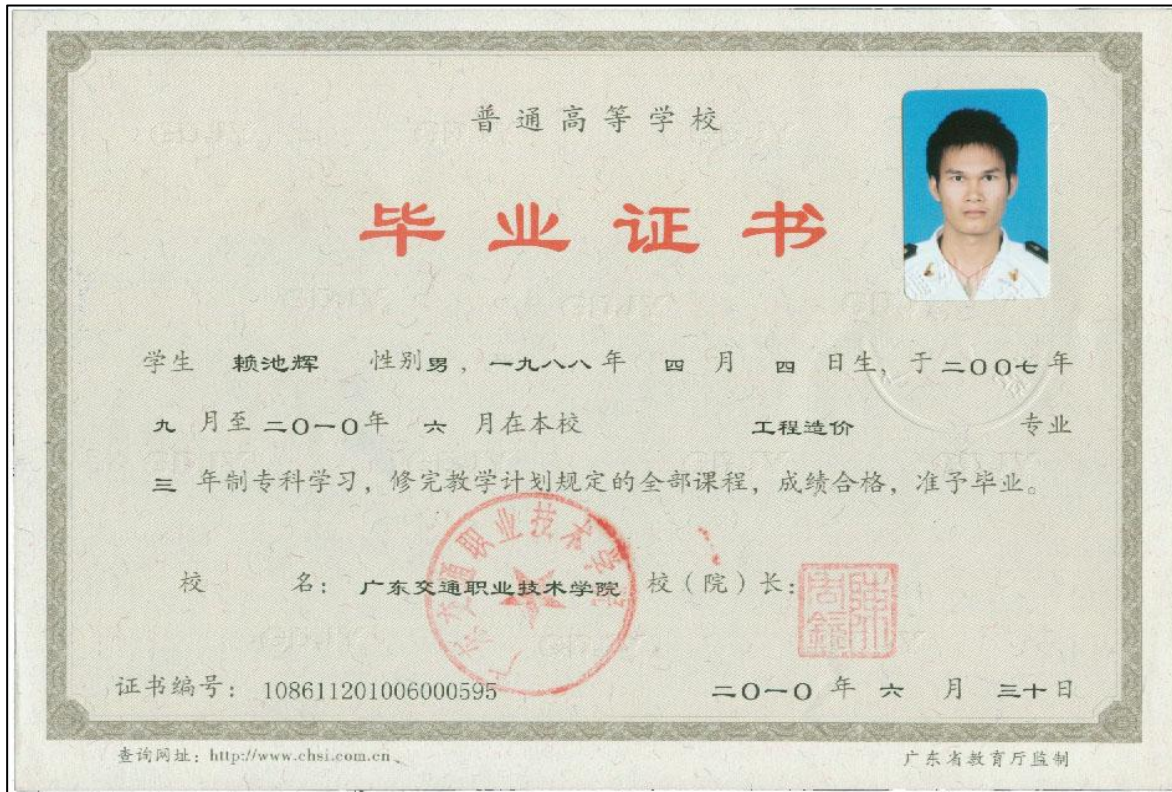 普通高等学校
毕业证书
学生 赖池辉 性别男，一九八八年 四 月 四 日生，于二〇〇七年
九 月至 二〇一〇年 六 月在本校 工程造价 专业
三 年制专科学习，修完教学计划规定的全部课程，成绩合格，准予毕业。
校 名：广东交通职业技术学院 校（院）长：
广东交通职业技术学院
证书编号：108611201006000595 二〇一〇 年 六 月 三十日
查询网址：http://www.chsi.com.cn
广东省教育厅监制